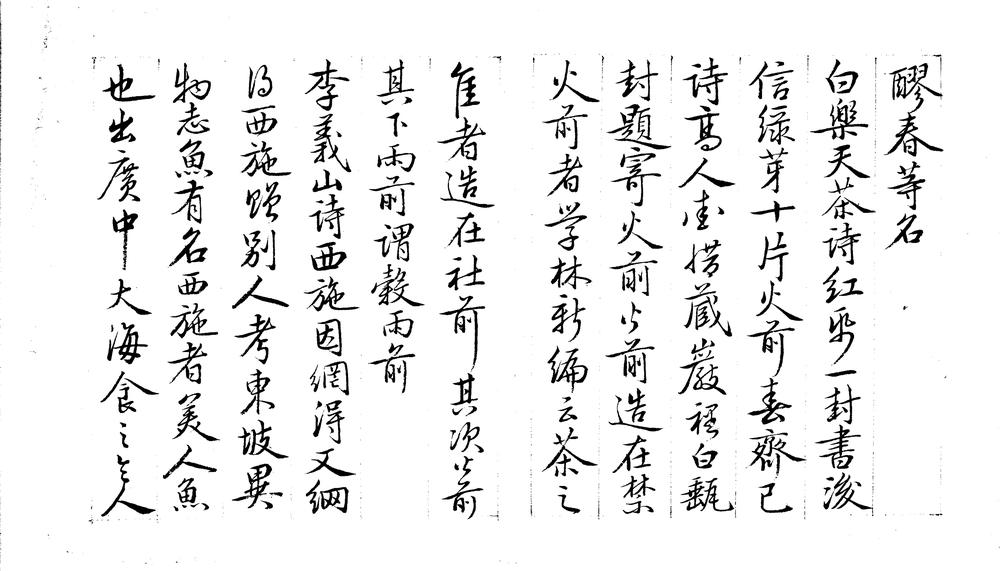 醪春等名
白樂天茶詩紅紙一封書後
信緑芽十片火前春齊已
詩髙人愛惜蔵巖裡白甀
封題寄火前火前造在禁
火前者学林新編云茶之
隹者造在社前其次火前
其下雨前謂穀雨前
李義山詩西施因網得又網
得西施贈别人考東坡異
物志魚有名西施者美人魚
也出廣中大海食之令人